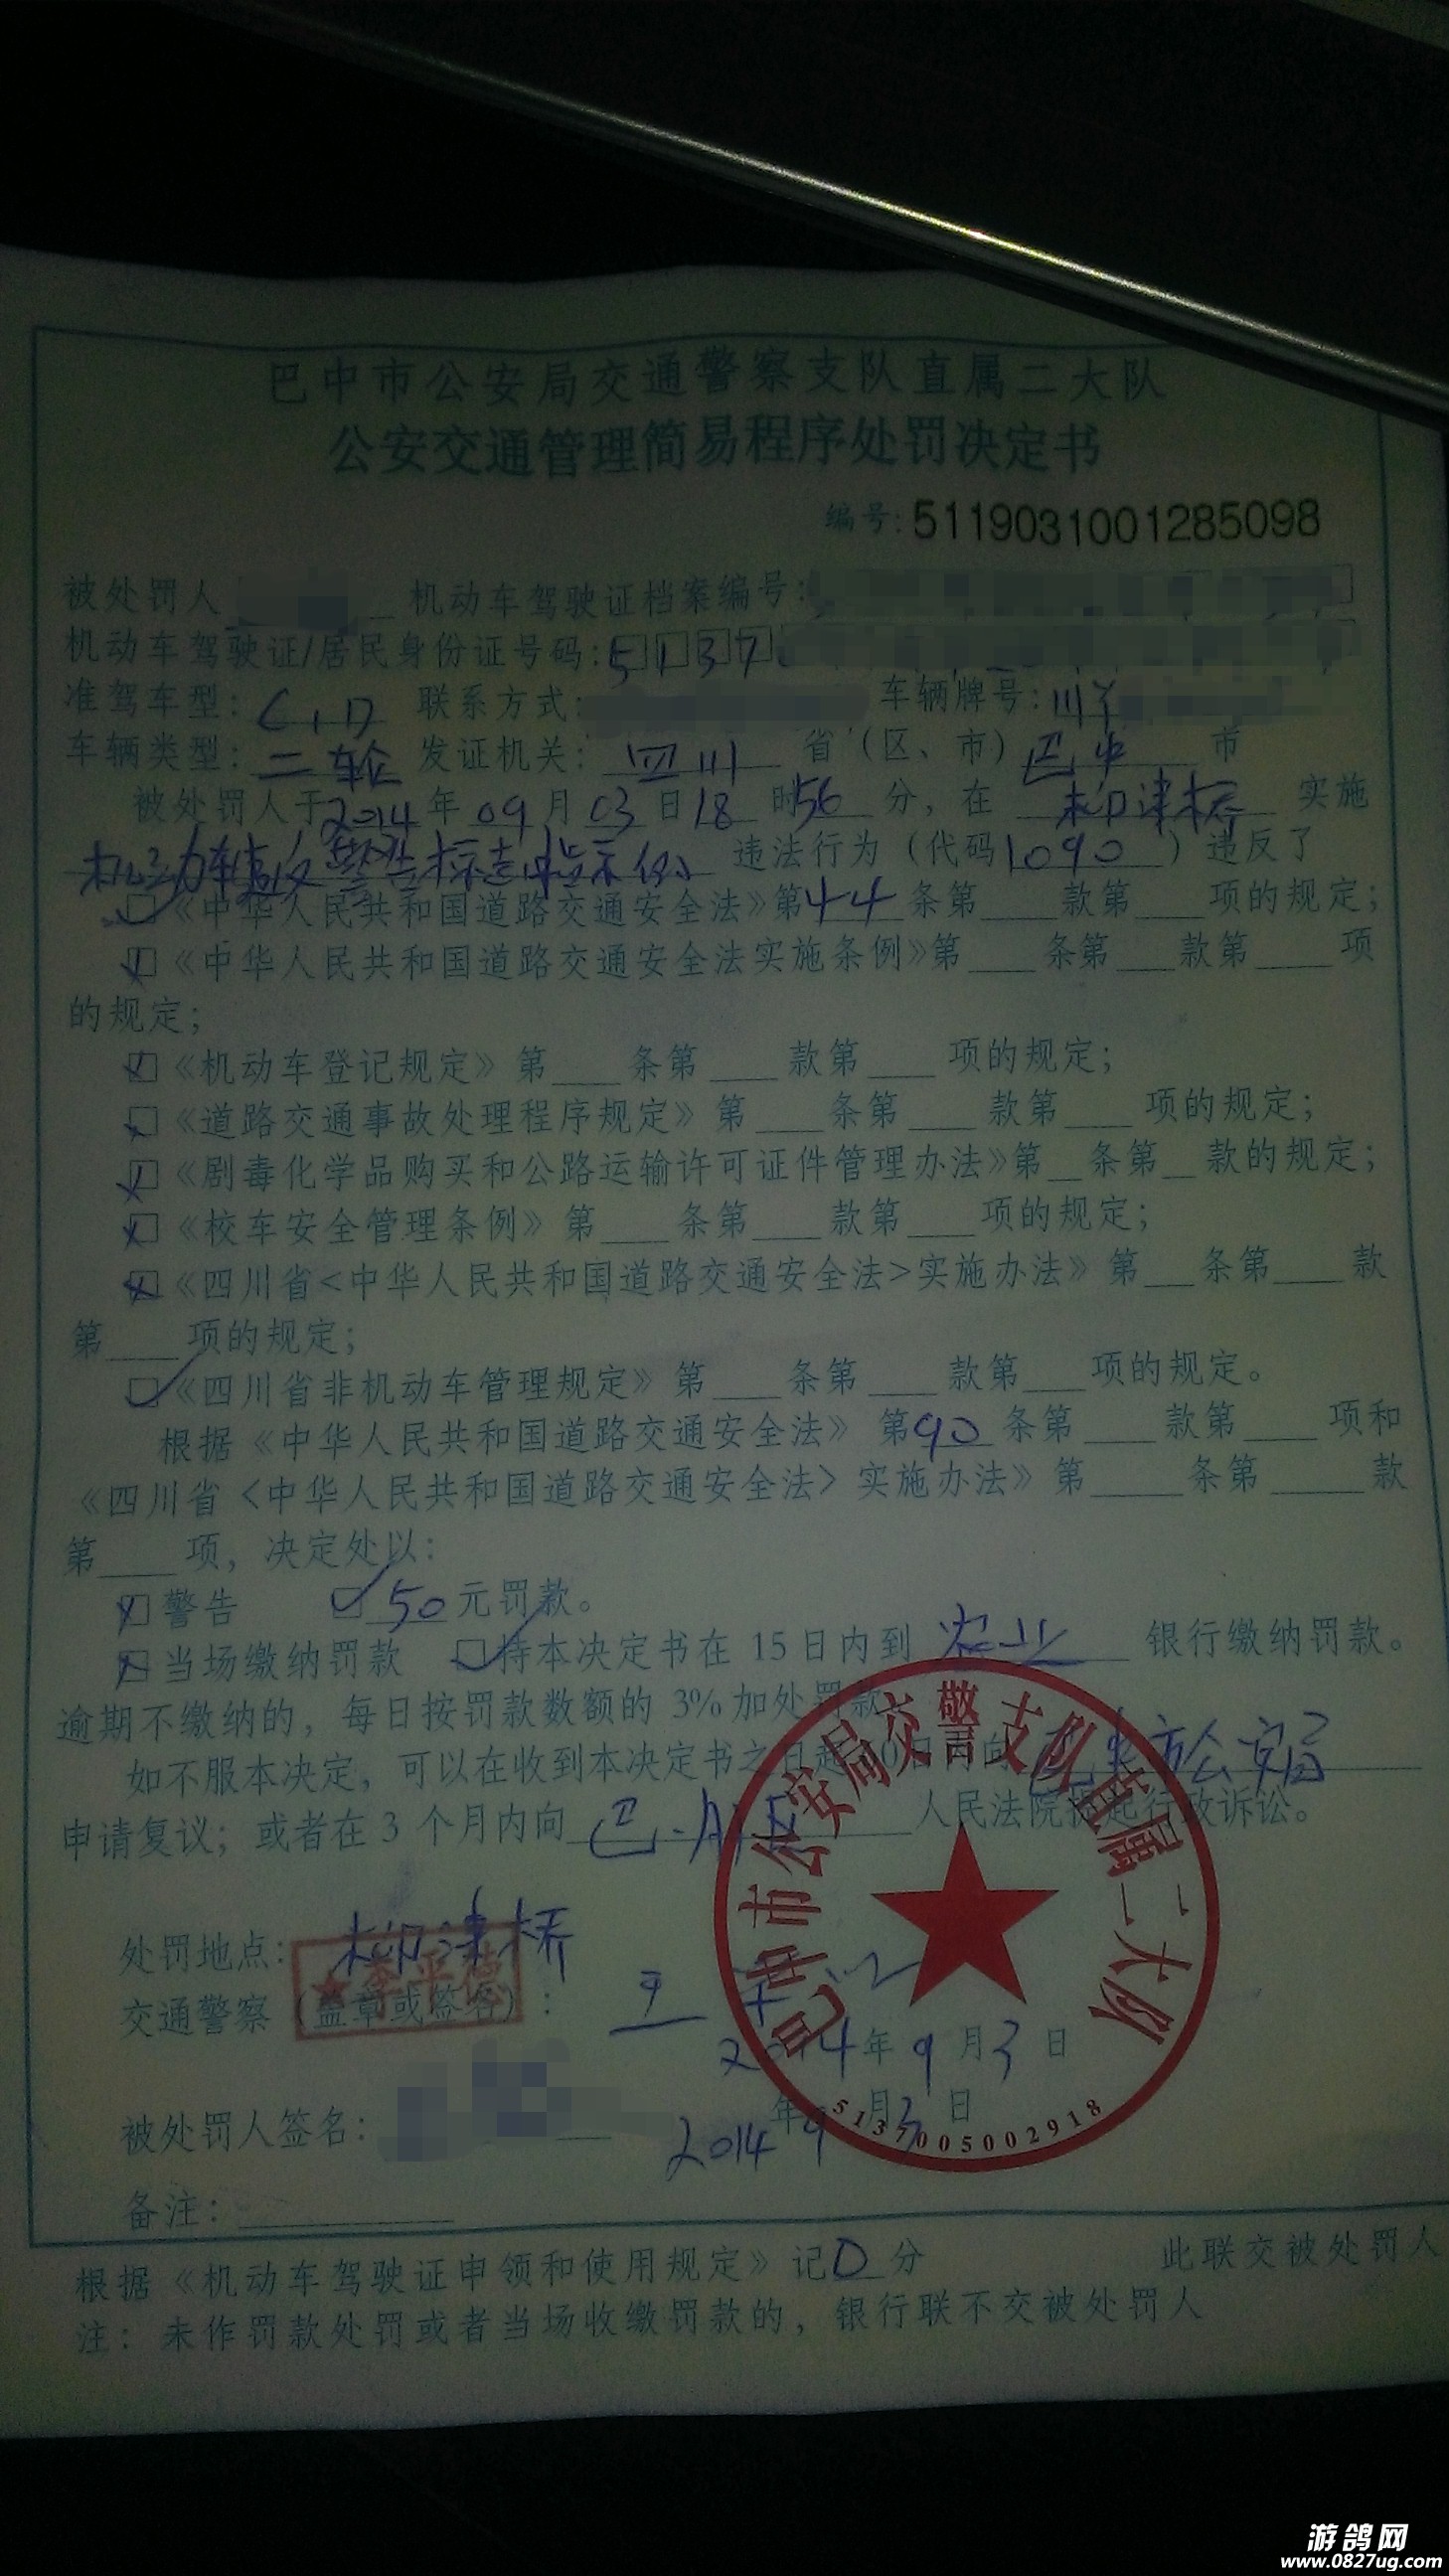 巴中市公安局交通警察支队直属二大队
公安交通管理简易程序处罚决定书
编号:5119031001285098
被处罚人 机动车驾驶证档案编号:
机动车驾驶证/居民身份证号码:5137
准驾车型: C1D 联系方式: 车辆牌号:川Y
车辆类型: 二轮 发证机关: 四川 省(区、市) 巴中 市
被处罚人于2014年09月03日18时56分,在 柳津桥 实施
机动车违反警告标志指示的 违法行为(代码1090)违反了
《中华人民共和国道路交通安全法》第44条第 款第 项的规定;
《中华人民共和国道路交通安全法实施条例》第 条第 款第 项
的规定;
《机动车登记规定》第 条第 款第 项的规定;
《道路交通事故处理程序规定》第 条第 款第 项的规定;
《剧毒化学品购买和公路运输许可证件管理办法》第 条第 款的规定;
《校车安全管理条例》第 条第 款第 项的规定;
《四川省<中华人民共和国道路交通安全法>实施办法》第 条第 款
第 项的规定;
《四川省非机动车管理规定》第 条第 款第 项的规定。
根据《中华人民共和国道路交通安全法》第90条第 款第 项和
《四川省<中华人民共和国道路交通安全法>实施办法》第 条第 款
第 项,决定处以:
警告 50元罚款。
当场缴纳罚款 持本决定书在15日内到 农业 银行缴纳罚款。
逾期不缴纳的,每日按罚款数额的3%加处罚款
如不服本决定,可以在收到本决定书之日起 0日内向 巴中市公安局
申请复议;或者在3个月内向 巴州区 人民法院提起行政诉讼。
处罚地点: 柳津桥
交通警察(盖章或签名):
2014年9月3日
被处罚人签名: 2014年9月3日
备注:
巴中市公安局交警支队直属二大队
5137005002918
根据《机动车驾驶证申领和使用规定》记0分 此联交被处罚人
注:未作罚款处罚或者当场收缴罚款的,银行联不交被处罚人
游鸽网
www.0827ug.com